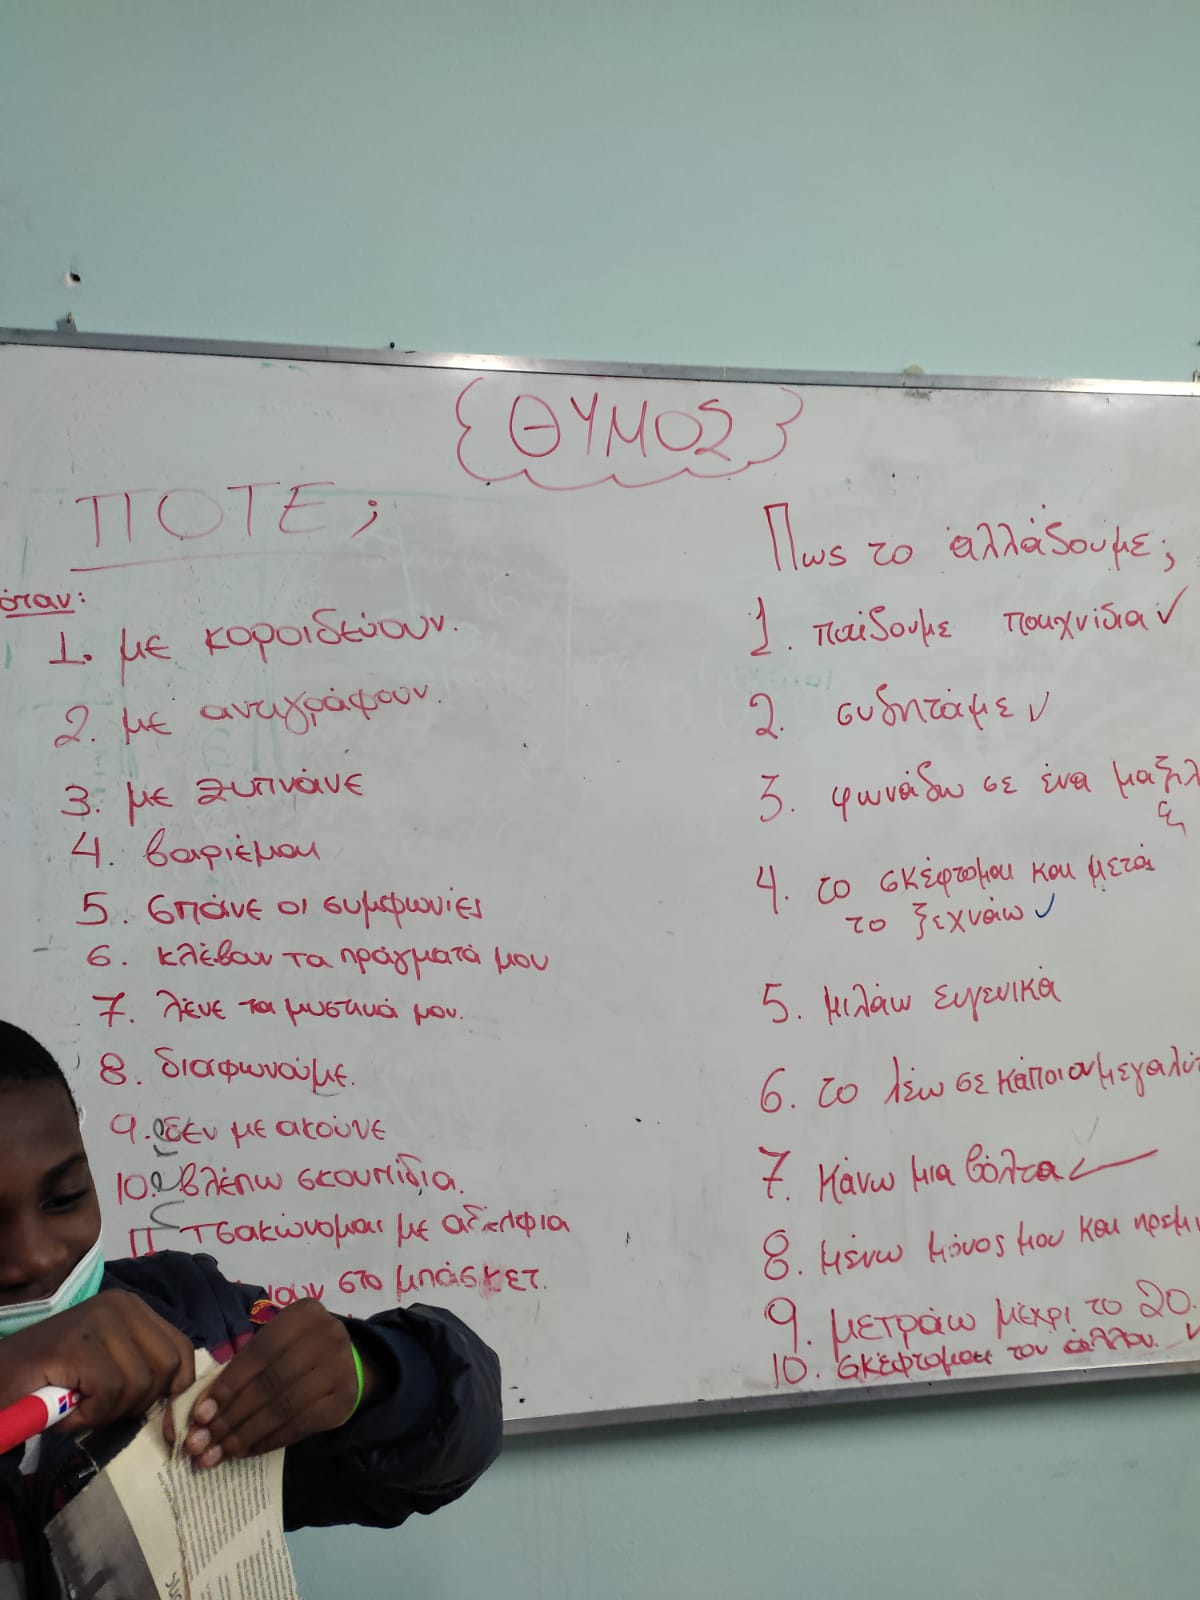 ΘΥΜΟΣ
ΠΟΤΕ;
όταν:
1. με κοροιδεύουν.
2. με αντιγράφουν.
3. με ξυπνάνε
4. βαριέμαι
5. σπάνε οι συμφωνίες
6. κλέβουν τα πράγματά μου
7. λένε τα μυστικά μου.
8. διαφωνούμε.
9. δεν με ακούνε
10. βλέπω σκουπίδια.
11 τσακώνομαι με αδέλφια
στο μπάσκετ.
Πως το αλλάζουμε;
1. παίζουμε παιχνίδια ✓
2. συζητάμε ✓
3. φωνάζω σε ένα
4. το σκέφτομαι και μετά
το ξεχνάω ✓
5. μιλάω ευγενικά
6. το λέω σε κάποιον
7. κάνω μια βόλτα ✓
8. μένω μόνος μου και
9. μετράω μέχρι το 20.
10. σκέφτομαι τον άλλου. ✓